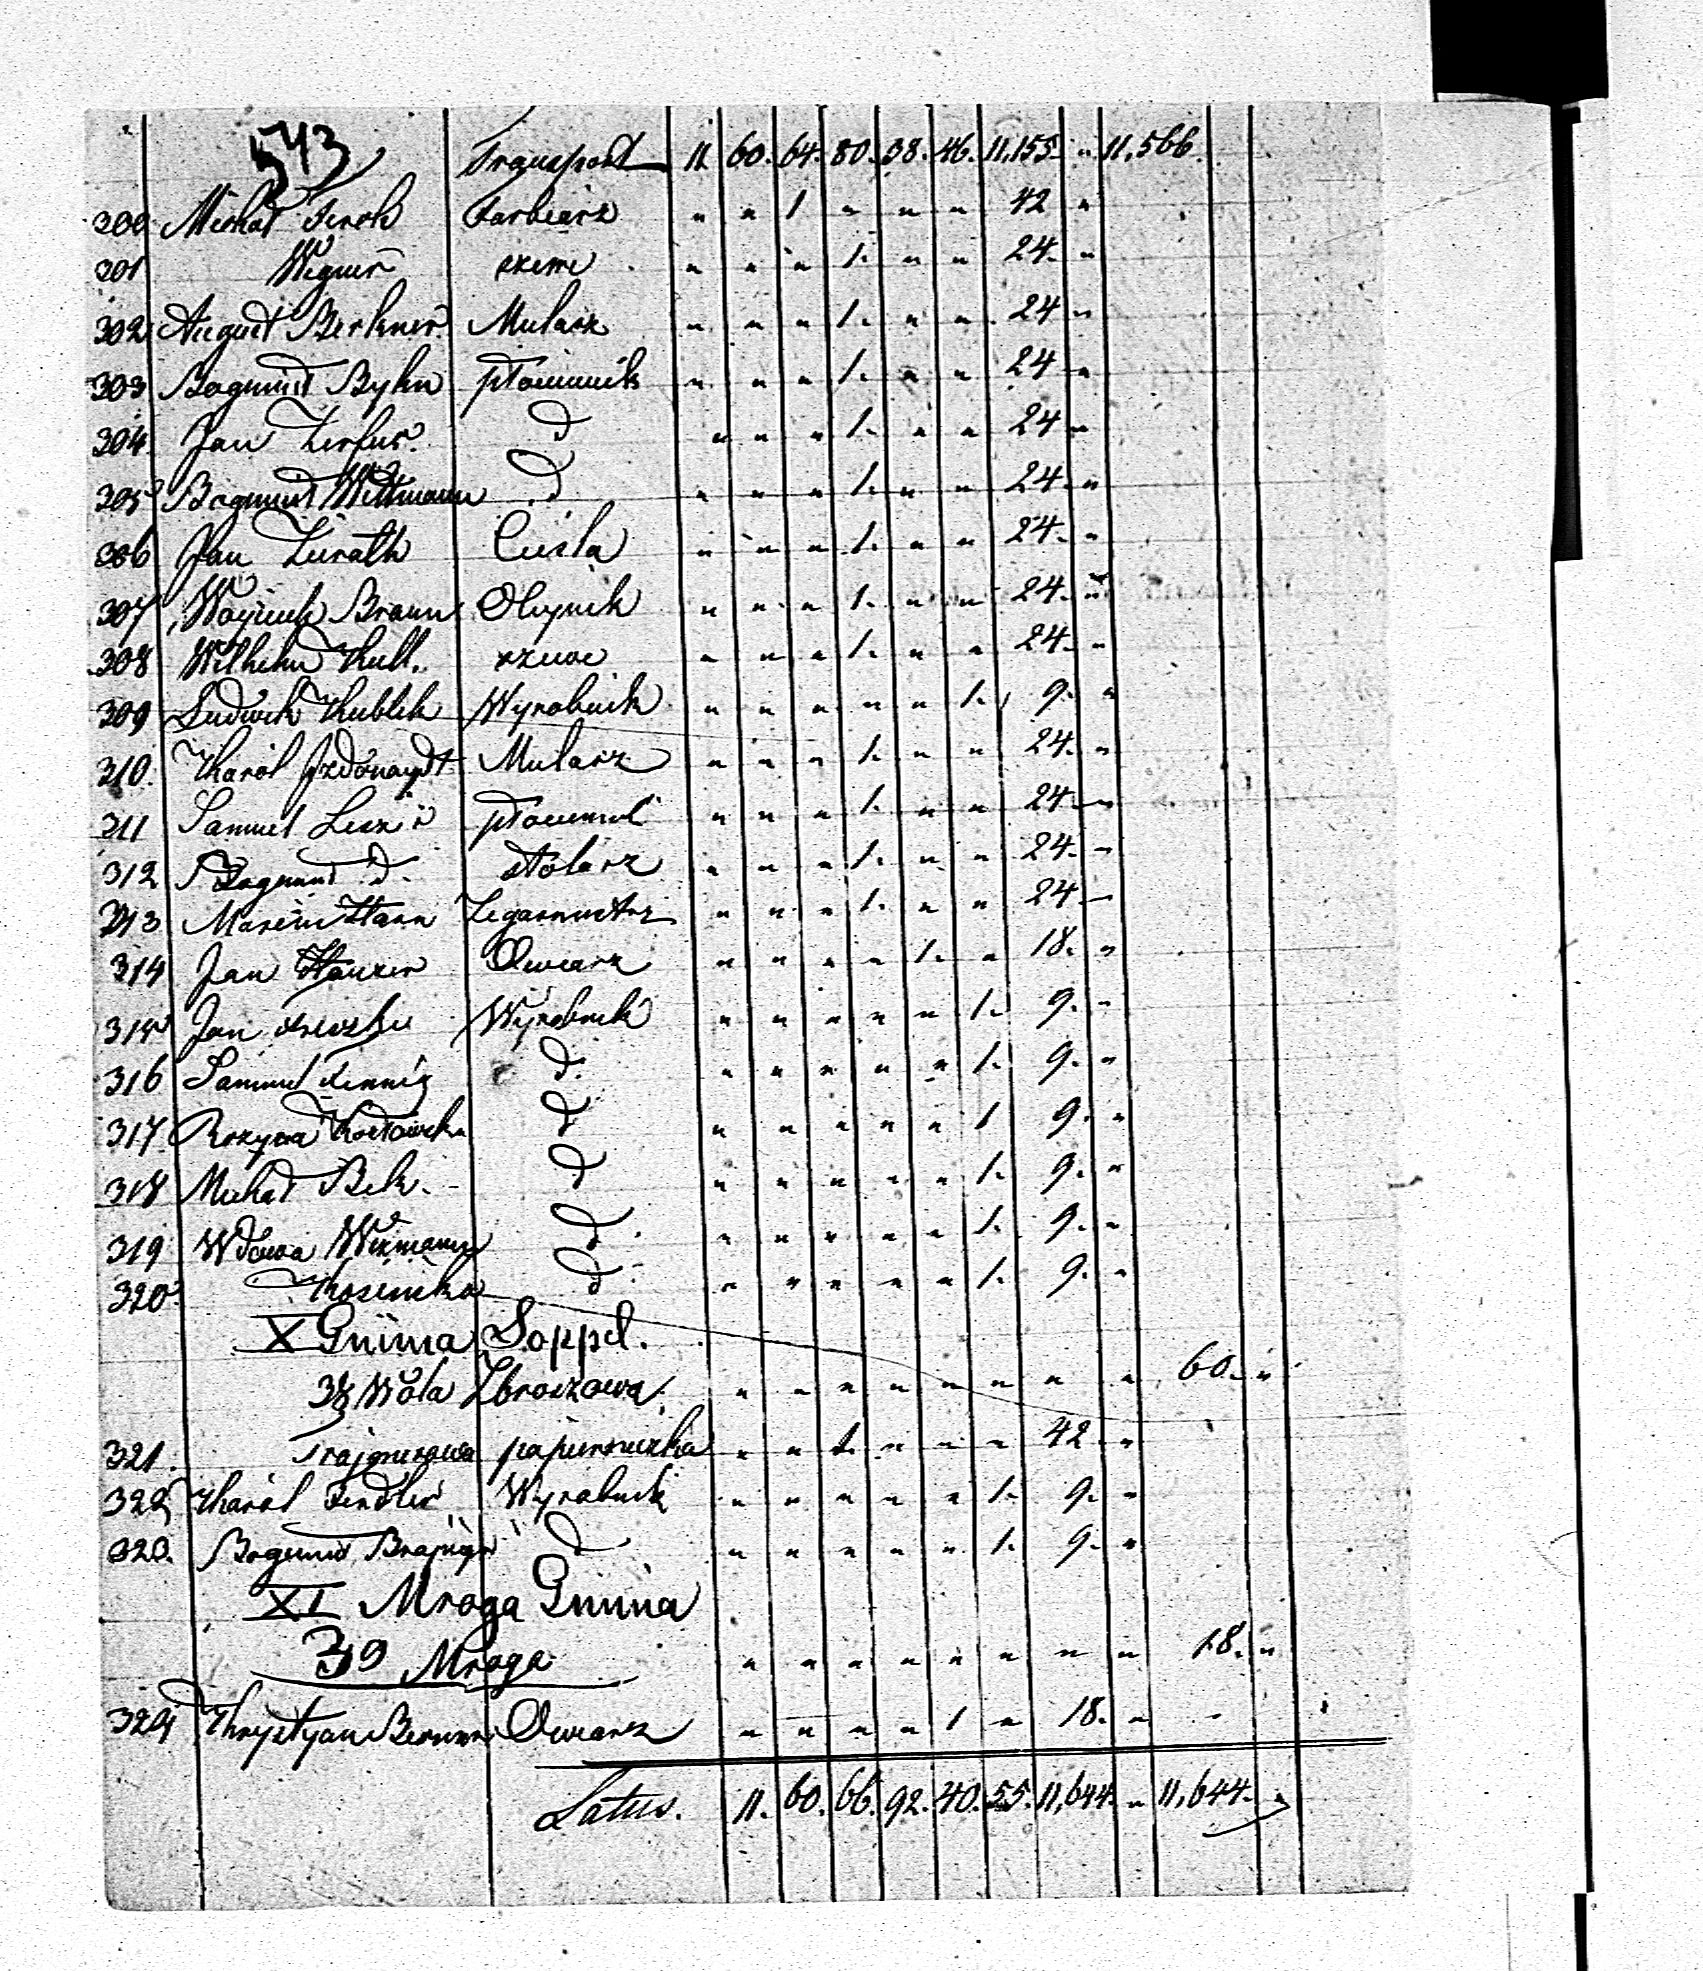 543 Transport 11 60. 64. 80. 38. 46. 11,155 " 11,566.
300 Michał Farbiarz " " 1 " " " 42 "
301 Wegner " " " 1. " " 24. "
302 August Berkner Mularz " " " 1. " " 24 "
303 Bogumił Byhn płóciennik " " " 1. " " 24 "
304 Jan d " " " 1. " " 24 "
305 Bogumił Wittmann d " " " 1. " " 24. "
306 Jan Zurath Cieśla " " " 1. " " 24. "
307 Wojciech Braun Olejnik " " " 1. " " 24. "
308 Wilhelm szewc " " " 1. " " 24. "
309 Ludwik Kublik Wyrobnik " " " " " 1. 9. "
310. Karól Mularz " " " 1. " " 24. "
311 Samuel płóciennik " " " 1. " " 24. "
312 Bogumił d. stolarz " " " 1. " " 24. "
313 Marcin Hann Zegarmistrz " " " 1. " " 24. "
314 Jan Owczarz " " " " 1. " 18. "
315 Jan Wyrobnik " " " " " 1. 9. "
316 Samuel d. " " " " " 1. 9. "
317. Rozyna d " " " " " 1 9. "
318 Michał Bek. d " " " " " 1. 9. "
319 Wdowa d. " " " " " 1. 9. "
320. d. " " " " " 1. 9. "
X Gmina Soppel.
38 Wola Zbrożkowa. " " " " " " " " 60. "
321. papierniczka " " 1. " " " 42. "
322 Karól Fendler Wyrobnik " " " " " 1. 9. "
323. Bogumił d " " " " " 1. 9. "
XI Mroga Gmina
39 Mroga " " " " " " " " 18. "
324 Krystyan Owczarz " " " " 1 " 18. " "
Latus. 11. 60. 66. 92. 40. 55. 11,644. " 11,644. "